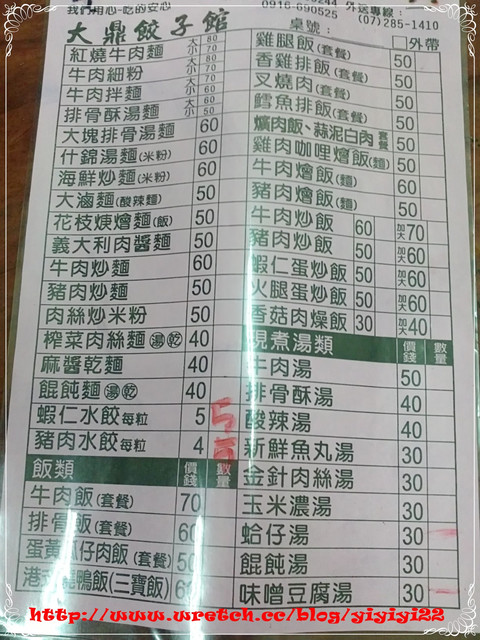 我們用心~吃的安心
0916-690525
外送專線:
(07)285-1410
大鼎餃子館
桌號:
紅燒牛肉麵 大80 小70
牛肉細粉 大70 小60
牛肉拌麵 大70 小60
排骨酥湯麵 大60 小50
大塊排骨湯麵 60
什錦湯麵(米粉) 60
海鮮炒麵(米粉) 60
大滷麵(酸辣麵) 50
花枝羹燴麵(飯) 50
義大利肉醬麵 50
牛肉炒麵 60
豬肉炒麵 50
肉絲炒米粉 50
榨菜肉絲麵 湯 乾 40
麻醬乾麵 40
餛飩麵 湯 乾 40
蝦仁水餃每粒 5
豬肉水餃每粒 4
飯類 價錢 數量
牛肉飯(套餐) 70
排骨飯(套餐) 60
蛋黃瓜仔肉飯(套餐) 50
港式燒鴨飯(三寶飯)
外帶
雞腿飯(套餐) 50
香雞排飯(套餐) 50
叉燒肉(套餐) 50
鱈魚排飯(套餐) 50
爌肉飯、蒜泥白肉 套餐 50
雞肉咖哩燴飯(麵) 50
牛肉燴飯(麵) 60
豬肉燴飯(麵) 50
牛肉炒飯 60 加大70
豬肉炒飯 50 加大60
蝦仁蛋炒飯 50 加大60
火腿蛋炒飯 50 加大60
香菇肉燥飯 30 加大40
現煮湯類 價錢 數量
牛肉湯 50
排骨酥湯 40
酸辣湯 40
新鮮魚丸湯 30
金針肉絲湯 30
玉米濃湯 30
蛤仔湯 30
餛飩湯 30
味噌豆腐湯 30
http://www.wretch.cc/blog/yiyiyi22